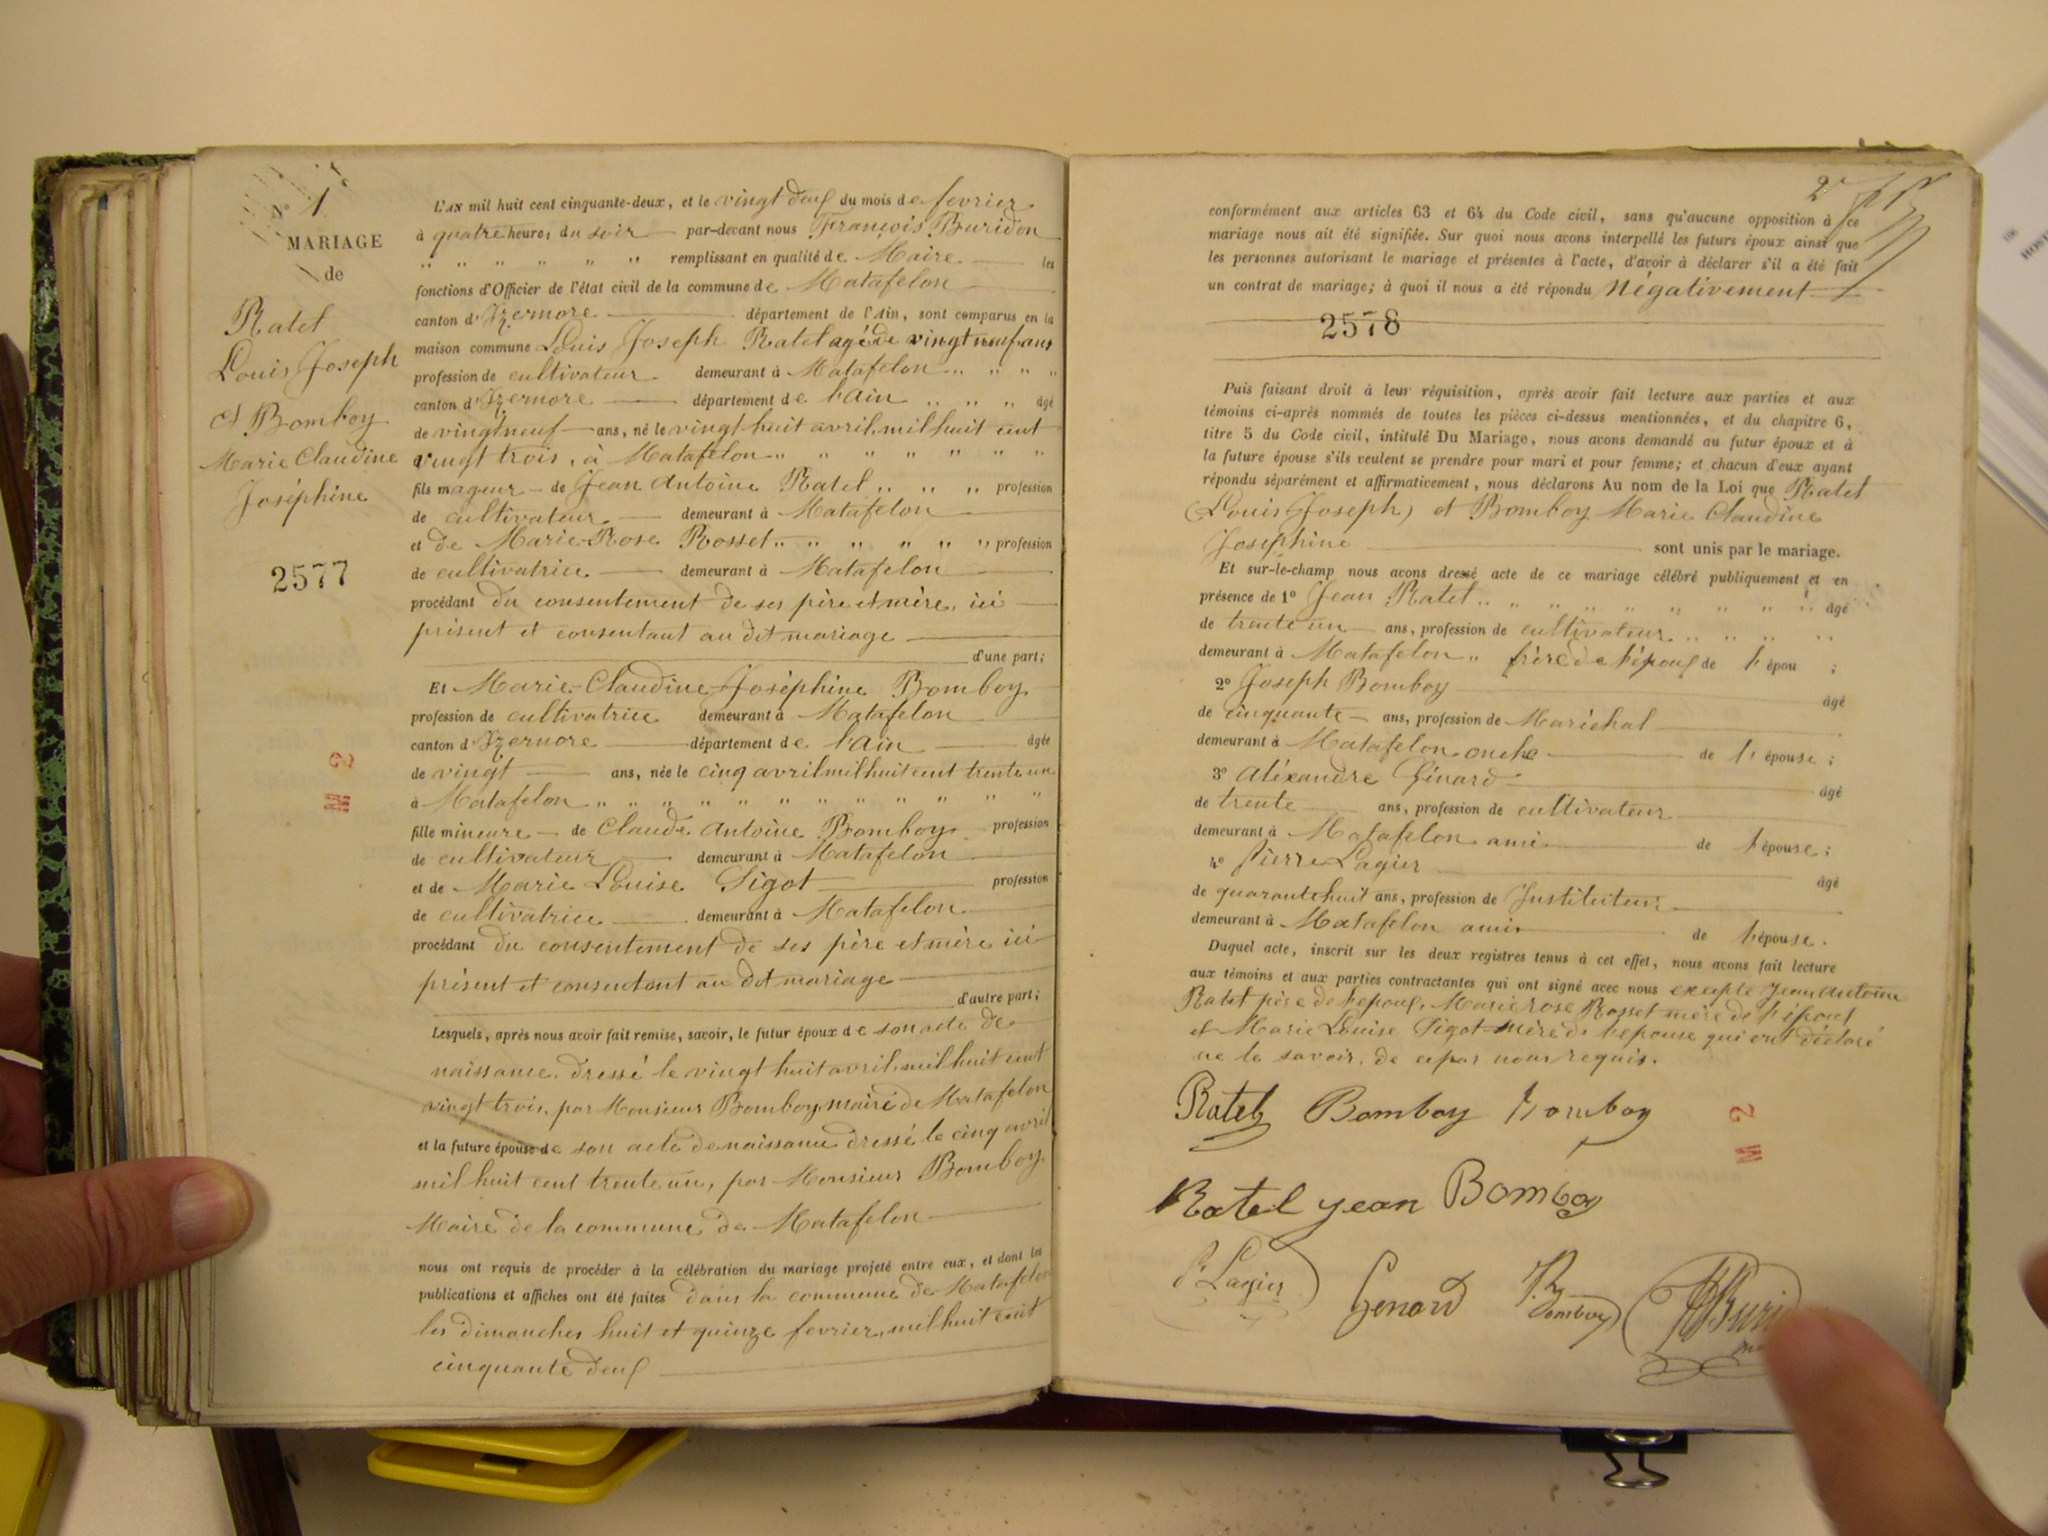 N° 1
MARIAGE
de
Ratel
Louis Joseph
et Bomboy
Marie Claudine
Joséphine
2577
M 2
L'AN mil huit cent cinquante-deux, et le vingt deuf du mois de fevrier
à quatre heures du soir par-devant nous François Buridon
" " " " " " remplissant en qualité de Maire les
fonctions d'Officier de l'état civil de la commune de Matafelon
canton d'Izernore département de l'Ain, sont comparus en la
maison commune Louis Joseph Ratel agé de vingt neuf ans
profession de cultivateur demeurant à Matafelon " " " "
canton d'Izernore département de l'Ain " " " âgé
de vingt neuf ans, né le vingt huit avril mil huit cent
vingt trois, à Matafelon " " " " " " "
fils mageur de Jean Antoine Ratel " " " profession
de cultivateur demeurant à Matafelon
et de Marie Rose Rosset " " " " " " profession
de cultivatrice demeurant à Matafelon
procédant du consentement de ses père et mère, ici
présent et consentant au dit mariage
d'une part;
Et Marie Claudine Joséphine Bomboy
profession de cultivatrice demeurant à Matafelon
canton d'Izernore département de l'Ain âgée
de vingt ans, née le cinq avril mil huit cent trente un
à Matafelon " " " " " " " " " " " "
fille mineure de Claude Antoine Bomboy profession
de cultivateur demeurant à Matafelon
et de Marie Louise Sigot profession
de cultivatrice demeurant à Matafelon
procédant du consentement de ses père et mère ici
présent et consentant au dit mariage
d'autre part;
Lesquels, après nous avoir fait remise, savoir, le futur époux de son acte de
naissance, dressé le vingt huit avril mil huit cent
vingt trois, par Monsieur Bomboy, maire de Matafelon
et la future épouse de son acte de naissance dressé le cinq avril
mil huit cent trente un, par Monsieur Bomboy
Maire de la commune de Matafelon
nous ont requis de procéder à la célébration du mariage projeté entre eux, et dont les
publications et affiches ont été faites dans la commune de Matafelon
les dimanches huit et quinze fevrier, mil huit cent
cinquante deuf
2
conformément aux articles 63 et 64 du Code civil, sans qu'aucune opposition à ce
mariage nous ait été signifiée. Sur quoi nous avons interpellé les futurs époux ainsi que
les personnes autorisant le mariage et présentes à l'acte, d'avoir à déclarer s'il a été fait
un contrat de mariage; à quoi il nous a été répondu Négativement
2578
Puis faisant droit à leur réquisition, après avoir fait lecture aux parties et aux
témoins ci-après nommés de toutes les pièces ci-dessus mentionnées, et du chapitre 6,
titre 5 du Code civil, intitulé Du Mariage, nous avons demandé au futur époux et à
la future épouse s'ils veulent se prendre pour mari et pour femme; et chacun d'eux ayant
répondu séparément et affirmativement, nous déclarons Au nom de la Loi que Ratel
(Louis Joseph) et Bomboy Marie Claudine
Joséphine sont unis par le mariage.
Et sur-le-champ nous avons dressé acte de ce mariage célébré publiquement et en
présence de 1° Jean Ratel " " " " " " " " " âgé
de trente un ans, profession de cultivateur " " " "
demeurant à Matafelon " frère de l'épouf de l'épou ;
2° Joseph Bomboy âgé
de cinquante ans, profession de Maréchal
demeurant à Matafelon oncle de l'épouse;
3° Aléxandre Génard âgé
de trente ans, profession de cultivateur
demeurant à Matafelon ami de l'épouse;
4° Pierre Lagier âgé
de quarante huit ans, profession de Instituteur
demeurant à Matafelon ami de l'épouse.
Duquel acte, inscrit sur les deux registres tenus à cet effet, nous avons fait lecture
aux témoins et aux parties contractantes qui ont signé avec nous excepté Jean Antoine
Ratel père de l'epouf, Marie rose Rosset mère de l'épouf
et Marie Louise Sigot mère de l'epouse qui ont déclaré
ne le savoir, de ce par nous requis.
Ratel Bomboy Bomboy
M 2
Ratel jean Bomboy
P. Lagier Genard Bomboy Buri